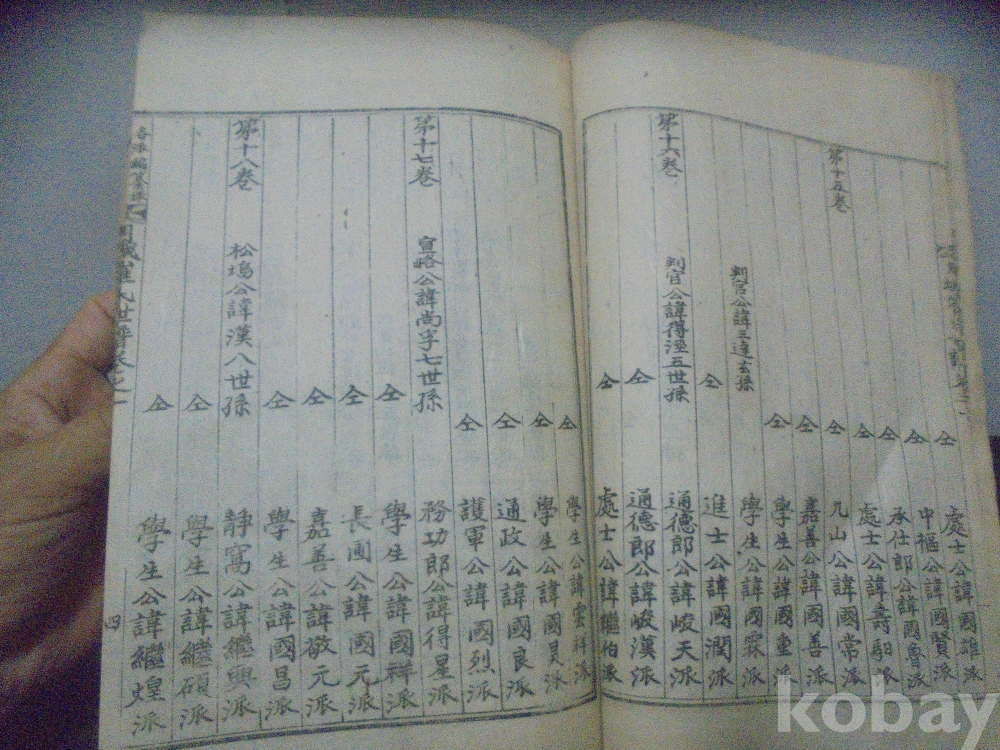 仝 處士公諱國雄派
仝 中樞公諱國賢派
仝 承仕郎公諱國魯派
仝 處士公諱壽 派
第十五卷 仝 九山公諱國常派
仝 嘉善公諱國善派
仝 學生公諱國重派
判官公諱三達玄孫 學生公諱國霖派
仝 進士公諱國潤派
第十六卷 判官公諱得涇五世孫 通德郎公諱峻天派
仝 通德郎公諱峻漢派
仝 處士公諱繼伯派
仝 學生公諱雲祥派
仝 學生公諱國昊派
仝 通政公諱國良派
仝 護軍公諱國烈派
第十七卷 宣略公諱尚孚七世孫 務功郎公諱得星派
仝 學生公諱國祥派
仝 長圃公諱國元派
仝 嘉善公諱敬元派
仝 學生公諱國昌派
第十八卷 松塢公諱漢八世孫 靜窩公諱繼興派
仝 學生公諱繼碩派
仝 學生公諱繼煌派
各派編纂 崔氏世譜卷之一 四
kobay